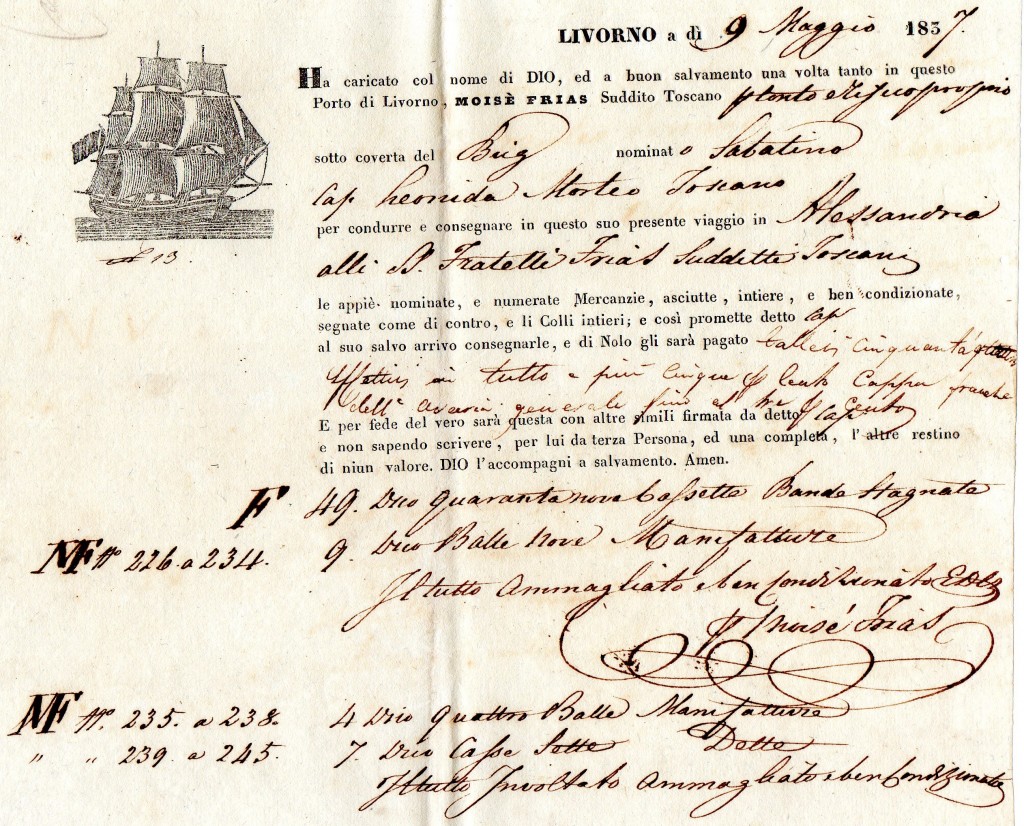 LIVORNO a dì 9 Maggio 1837.
Ha caricato col nome di DIO, ed a buon salvamento una volta tanto in questo
Porto di Livorno, MOISÈ FRIAS Suddito Toscano p Conto e Risico proprio
sotto coverta del Brig nominato Sabatino
Cap Leonida Morteo Toscano
per condurre e consegnare in questo suo presente viaggio in Alessandria
N 13.
alli SS. Fratelli Frias Sudditi Toscani
le appiè nominate, e numerate Mercanzie, asciutte, intiere, e ben condizionate,
segnate come di contro, e li Colli intieri; e così promette detto Cap
al suo salvo arrivo consegnarle, e di Nolo gli sarà pagato talleri cinquanta
effettivi in tutto e più cinque p Cento Cappa franche
dell' avaria generale fino al tre p Cento
E per fede del vero sarà questa con altre simili firmata da detto Cap
e non sapendo scrivere, per lui da terza Persona, ed una completa, l'altre restino
di niun valore. DIO l'accompagni a salvamento. Amen.
F 49. Dico Quaranta nove Cassette Bande Stagnate
MF No 226. a 234. 9. Dico Balle Nove Manifatture
Il tutto Ammagliato e ben Condizionato
p Moisé Frias
MF No. 235. a 238. 4 Dico Quattro Balle Manifatture
" " 239. a 245. 7. Dico Casse Sette Dette
Il tutto Involtato Ammagliato e ben Condizionato